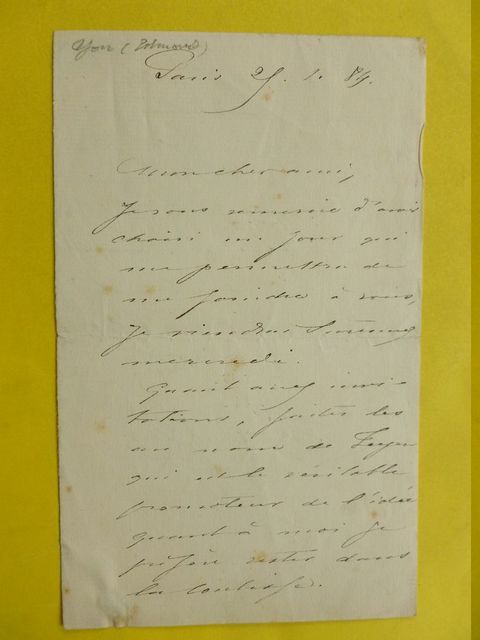 Yon (Edmond)
Paris 25. 1. 89.
Mon cher ami,
Je vous remercie d'avoir
choisi un jour qui
me permettra de
me joindre à vous,
Je viendrai
mercredi.
Quant aux invi-
tations, faites les
au nom de Feyen
qui est le véritable
promoteur de l'idée
quant à moi je
préfère rester dans
la coulisse.